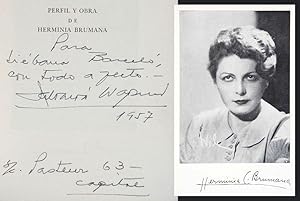 PERFIL Y OBRA
DE
HERMINIA BRUMANA
Para
Liébana Barceló,
con todo afecto.—
1957
Pasteur 63—
Herminia C. Brumana